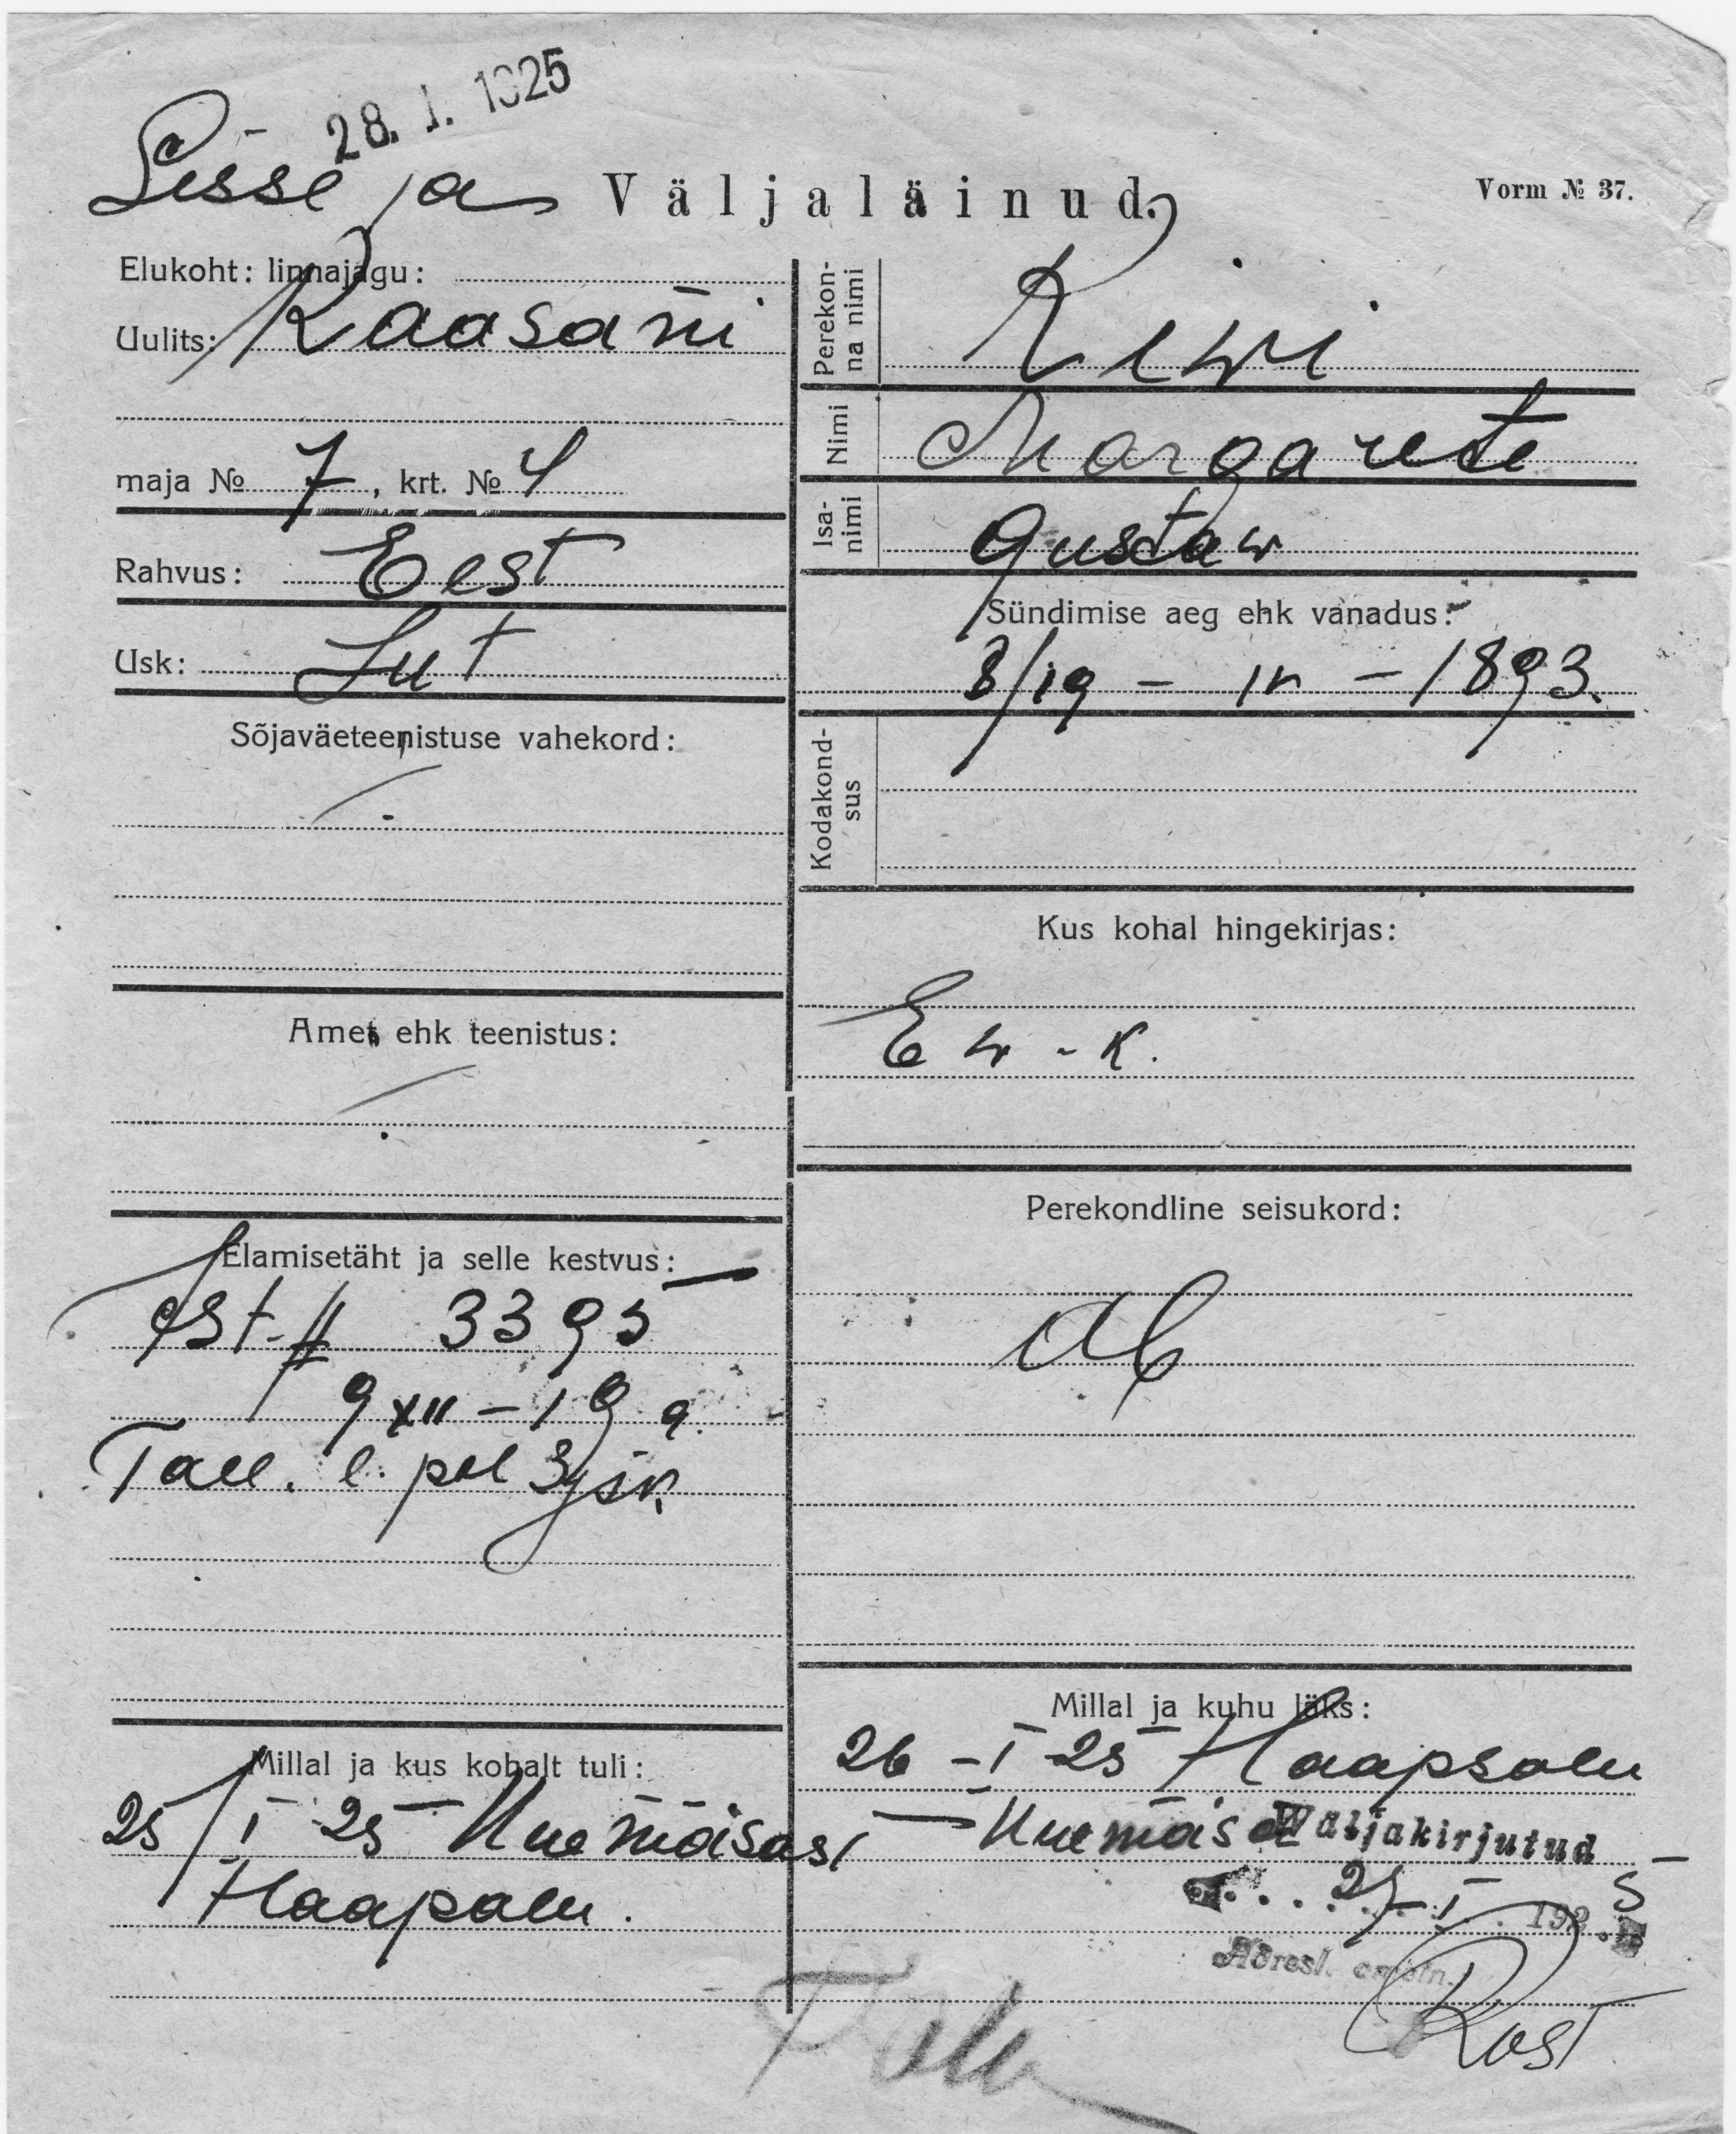 28. I. 1925
Sisse ja Väljaläinud.
Vorm № 37.
Elukoht: linnajagu:
Uulits: Kaasani
maja № 7, krt. № 4
Rahvus: Eest
Usk: Lut
Sõjaväeteenistuse vahekord:
Amet ehk teenistus:
Elamisetäht ja selle kestvus:
3395
9 XII - 19
Tall. l. pol 3 jsk.
Millal ja kus kohalt tuli:
25/I 25 Uuemõisast
Haapsalu.
Perekonna nimi
Kiwi
Nimi
Margarete
Isanimi
Gustaw
Sündimise aeg ehk vanadus:
8/19 - IV - 1893.
Kodakondsus
Kus kohal hingekirjas:
Ew - k.
Perekondline seisukord:
ab
Millal ja kuhu läks:
26 - I 25 Haapsalu
Uuemõisa
Wäljakirjutud
I 192 5
Adresl. ametn.
Rost